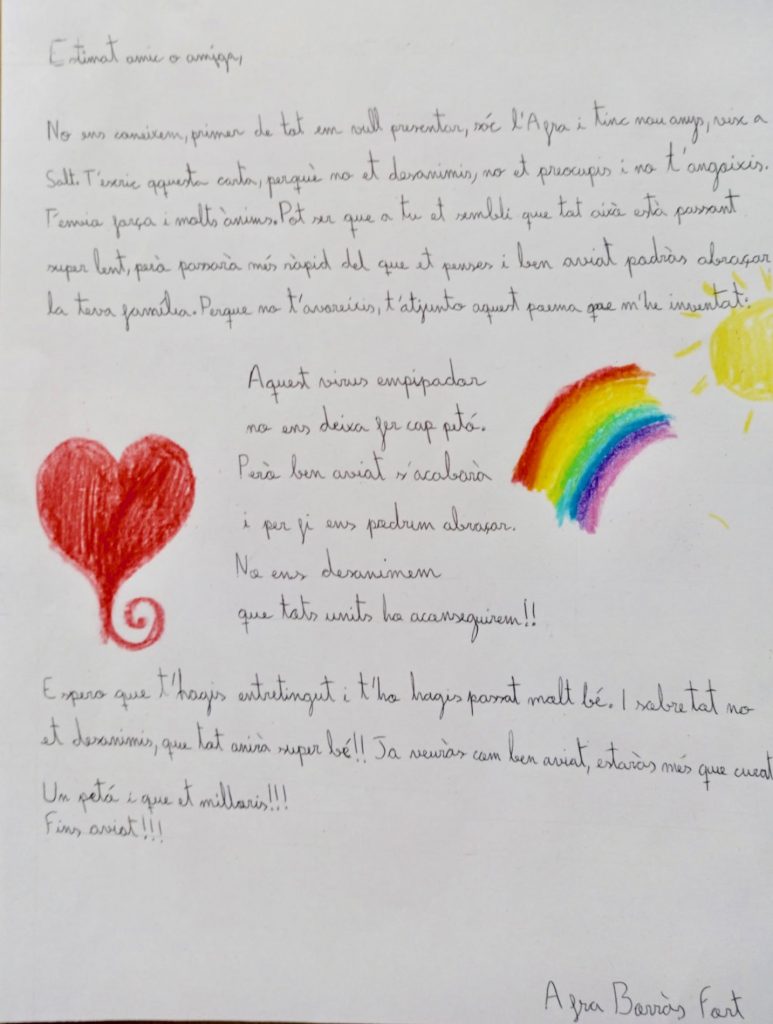 Estimat amic o amiga,
No ens coneixem, primer de tot em vull presentar, sóc l'Afra i tinc nou anys, visc a
Salt. T'escric aquesta carta, perquè no et desanimis, no et preocupis i no t'angoixis.
T'envio força i molts ànims. Pot ser que a tu et sembli que tot això està passant
super lent, però passarà més ràpid del que et penses i ben aviat podràs abraçar
la teva família. Perque no t'avorreixis, t'atjunto aquest poema que m'he inventat:
Aquest virus empipador
no ens deixa fer cap petó.
Però ben aviat s'acabarà
i per fi ens podrem abraçar.
No ens desanimem
que tots units ho aconseguirem!!
Espero que t'hagis entretingut i t'ho hagis passat molt bé. I sobretot no
et desanimis, que tot anirà super bé!! Ja veuràs com ben aviat, estaràs més que curat
Un petó i que et milloris!!!
Fins aviat!!!
Afra Borràs Fort